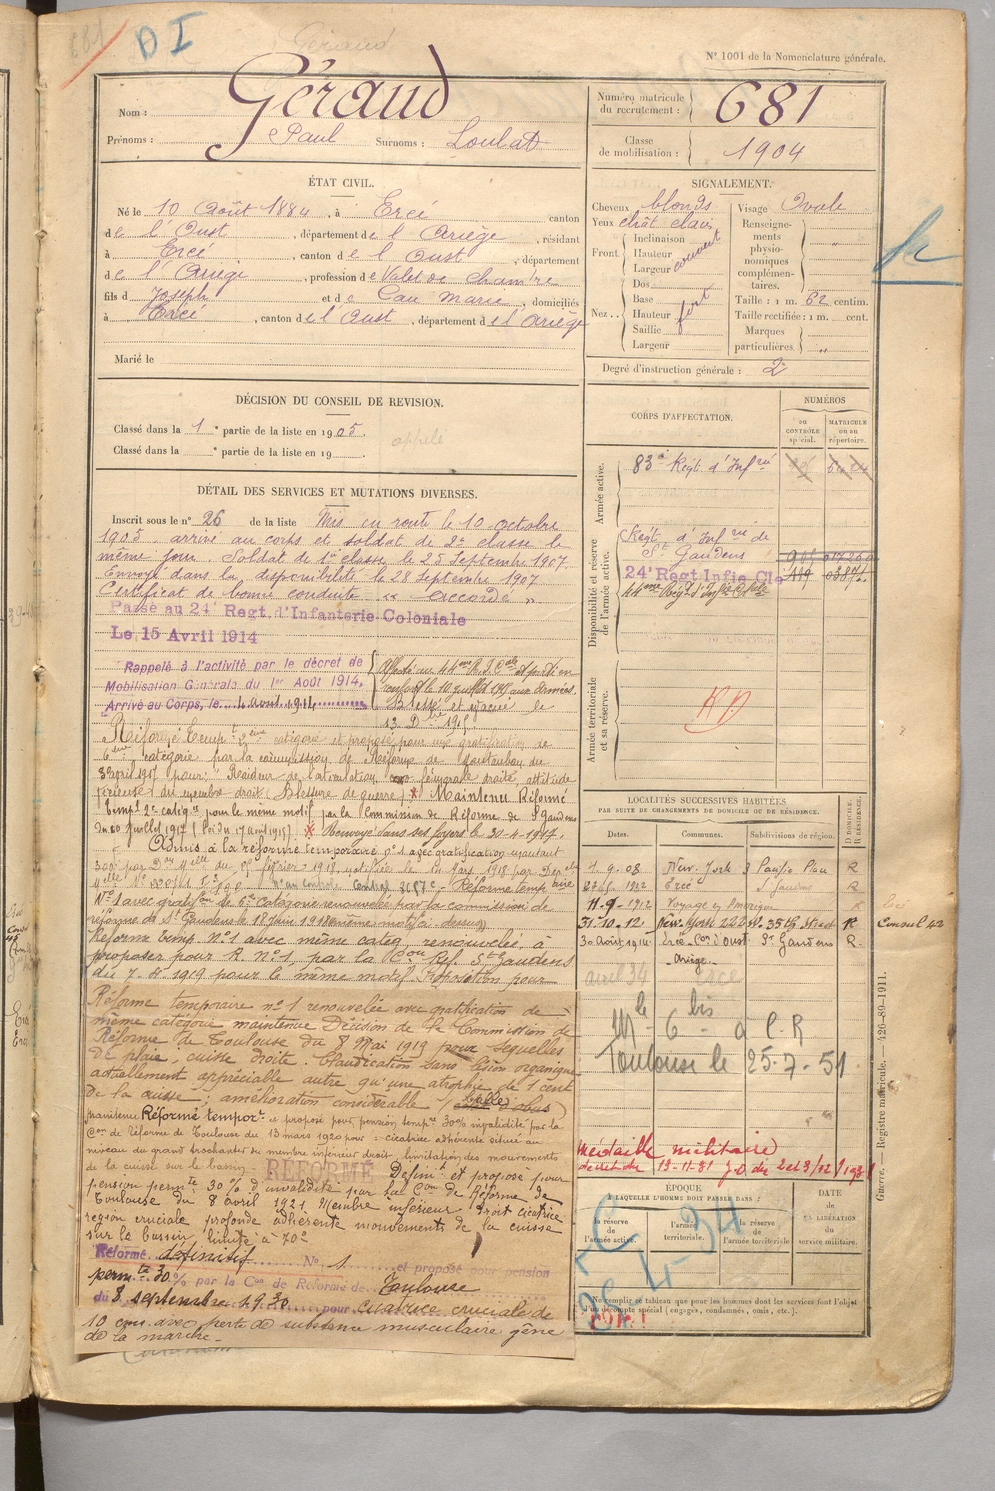 681
D I
Géraud
N° 1001 de la Nomenclature générale.
Nom : Géraud
Prénoms : Paul Surnoms : Loubat
Numéro matricule du recrutement : 681
Classe de mobilisation : 1904
ÉTAT CIVIL.
Né le 10 Août 1884, à Ercé canton
de l'Oust, département de l'Ariège, résidant
à Ercé, canton de l'Oust, département
de l'Ariège, profession de Valet de chambre
fils d Joseph et de Cau Marie, domiciliés
à Ercé, canton de l'Oust, département de l'Ariège
Marié le
SIGNALEMENT.
Cheveux blonds
Yeux chât clairs
Front Inclinaison Hauteur Largeur couvert
Nez Dos Base Hauteur Saillie Largeur fort
Visage Ovale
Renseignements physionomiques complémentaires. "
Taille : 1 m. 62 centim.
Taille rectifiée : 1 m. cent.
Marques particulières "
Degré d'instruction générale : 2
DÉCISION DU CONSEIL DE REVISION.
Classé dans la 1e partie de la liste en 1905.
appelé
Classé dans la e partie de la liste en 19
DÉTAIL DES SERVICES ET MUTATIONS DIVERSES.
Inscrit sous le n° 26 de la liste Mis en route le 10 octobre
1905. arrivé au corps et soldat de 2e classe le
même jour. Soldat de 1re classe le 25 Septembre 1907.
Envoyé dans la disponibilité le 28 Septembre 1907.
Certificat de bonne conduite "Accordé"
Passé au 24e Regt. d'Infanterie Coloniale
Le 15 Avril 1914
Rappelé à l'activité par le décret de
Mobilisation Générale du 1er Août 1914.
Arrivé au Corps, le 4 aout 1914
Affecté au 44eme R. I Cale et parti en
renfort le 10 juillet 1915 aux armées.
Blessé et évacué le
13. Dbre 1915.
Réformé Tempt 2eme catégorie et proposé pour une gratification de
6eme catégorie par la commission de Réforme de Montauban du
8 avril 1917 pour: "Raideur de l'articulation fémorale droite, attitude
vicieuse du membre droit (Blessure de guerre) * Maintenu Réformé
Tempt 2e categie pour le même motif par la Commission de Réforme de St Gaudens
du 20 Juillet 1917 (Loi du 17 avril 1915) * Renvoyé dans ses foyers le 30-4-1917.
Admis à la réforme temporaire n° 1 avec gratification
N° 1 avec gratifon de 6e Catégorie renouvelée par la commission de
réforme de St Gaudens le 18 Juin 1918 (même motif ci-dessus)
Réforme temp. N° 1 avec même catég. renouvelée, à
proposer pour R. N° 1, par la Con Ref. St Gaudens
du 7. 4. 1919 pour le même motif.
Réforme temporaire n° 1 renouvelée avec gratification de
même catégorie maintenue Décision de la Commission de
Réforme de Toulouse du 8 Mai 1919 pour sequelles
de plaie, cuisse droite. Claudication sans lésion organique
actuellement appréciable autre qu'une atrophie de 1 cent
de la cuisse ; amélioration considérable
maintenu Réformé temport et proposé pour pension tempre 30% invalidité par la
Con de Réforme de Toulouse du 13 mars 1920 pour : cicatrice adhérente située au
niveau du grand trochanter du membre inférieur droit, limitation des mouvements
de la cuisse sur le bassin
RÉFORMÉ
Définit et proposé pour
pension permte 30% d'invalidité par la Con de Réforme de
Toulouse du 8 avril 1921 Membre inférieur droit cicatrice
région cruciale profonde adhérente mouvements de la cuisse
sur le bassin limité à 70°
Réformé définitif N° 1 et proposé pour pension
permte 30 % par la Con de Réforme de Toulouse
du 8 septembre 1930 pour cicatrice cruciale de
10 cm. avec perte de substance musculaire gêne
de la marche.
CORPS D'AFFECTATION.
NUMÉROS
DU CONTRÔLE spécial.
MATRICULE ou au répertoire.
Armée active.
83e Régt. d'Infrie
Disponibilité et réserve de l'armée active.
Régt. d'Infrie de
St Gaudens
24e Regt Infie Cle
44eme Régt d'Infie Colale
Armée territoriale et sa réserve.
LOCALITÉS SUCCESSIVES HABITÉES
PAR SUITE DE CHANGEMENTS DE DOMICILE OU DE RÉSIDENCE.
Dates. Communes. Subdivisions de région. D DOMICILE. R RÉSIDENCE.
1. 9. 08 New-York R
1912 Ercé St Gaudens R
11-9-1912 Voyage en Amérique R
31.10.12 New York 222 W. 35th Street R Consul 42
30 Août 1914 Ercé Con d'Oust St Gaudens R.
Ariège.
avril 34 Ercé
Mle 6 bis a C.R
Toulouse le 25-7-51
Médaille militaire
décret du
ÉPOQUE
À LAQUELLE L'HOMME DOIT PASSER DANS :
la réserve de l'armée active.
l'armée territoriale.
la réserve de l'armée territoriale
DATE de LA LIBÉRATION du service militaire.
Ne remplir ce tableau que pour les hommes dont les services font l'objet
d'un décompte spécial (engagés, condamnés, omis, etc.).
Guerre. — Registre matricule. — 426-89-1911.